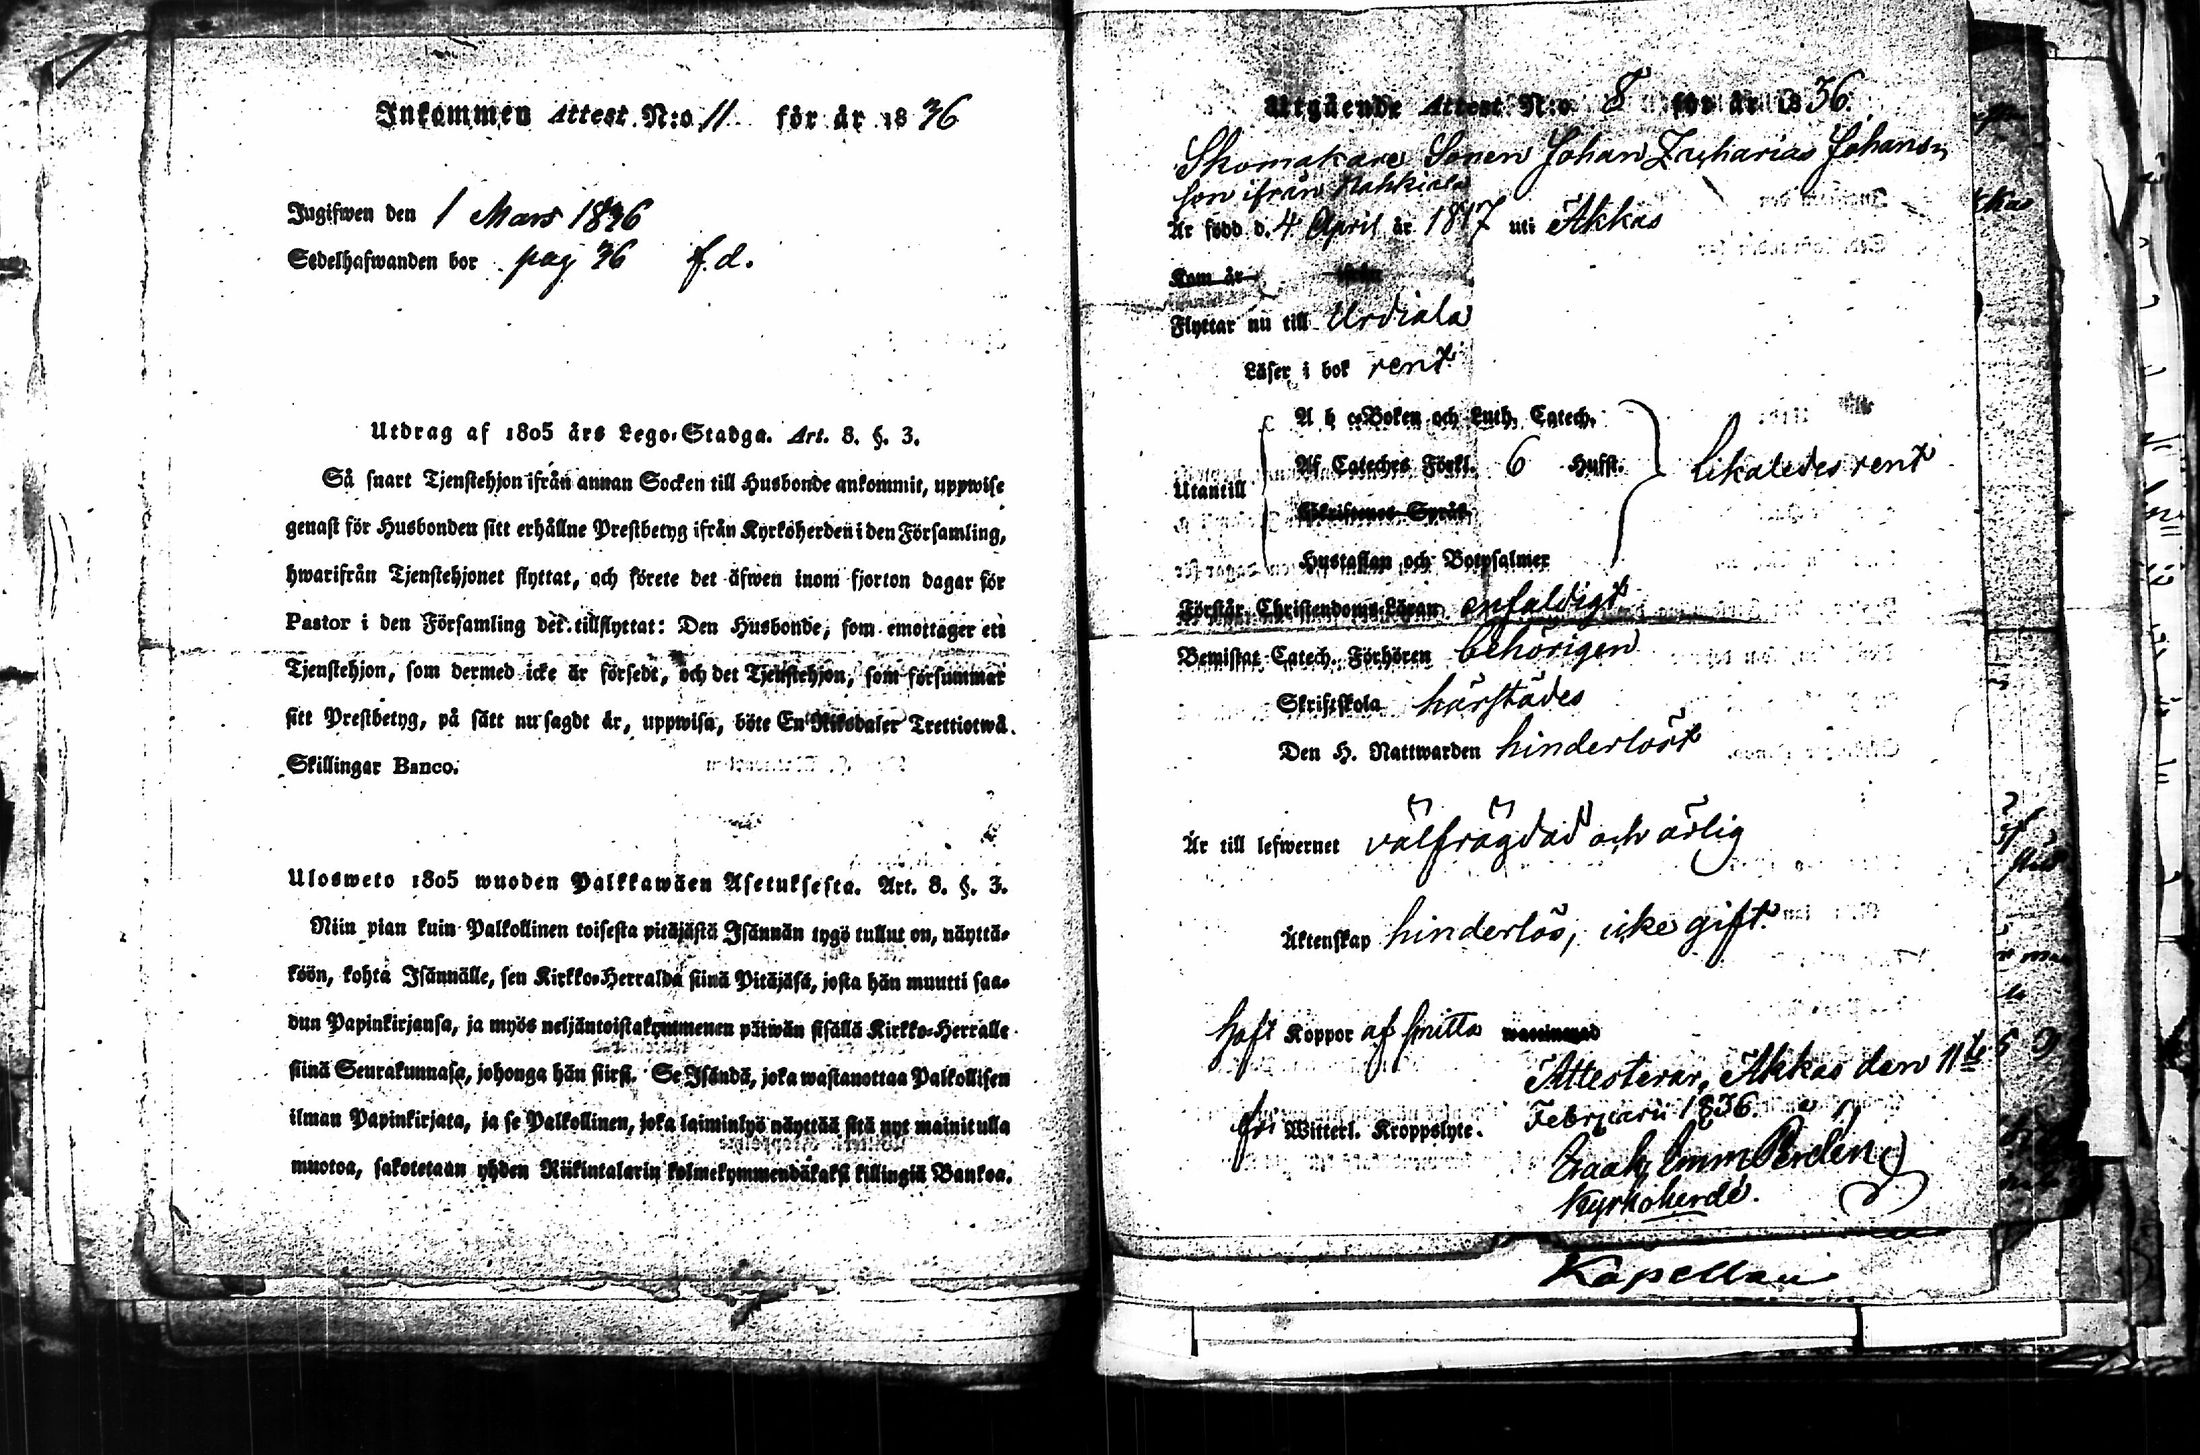 Inkommen Attest N:o 11 för år 1836
Ingifwen den 1 Mars 1836
Sedelhafwanden bor pag 36 f.d.
Utdrag af 1805 års Lego-Stadga. Art. 8. §. 3.
Så snart Tjenstehjon ifrån annan Socken till Husbonde ankommit, uppwise
genast för Husbonden sitt erhållne Prestbetyg ifrån Kyrkoherden i den Församling,
hwarifrån Tjenstehjonet flyttat, och förete det äfwen inom fjorton dagar för
Pastor i den Församling det tillflyttat: Den Husbonde, som emottager ett
Tjenstehjon, som dermed icke är försedt, och det Tjenstehjon, som försummar
sitt Prestbetyg, på sätt nu sagdt är, uppwisa, böte En Riksdaler Trettiotwå
Skillingar Banco.
Ulosweto 1805 wuoden Palkkawäen Asetuksesta. Art. 8. §. 3.
Niin pian kuin Palkollinen toisesta pitäjästä Isännän tygö tullut on, näyttä-
köön, kohta Isännälle, sen Kirkko-Herralda siinä Pitäjäsä, josta hän muutti saa-
dun Papinkirjansa, ja myös neljäntoistakymmenen päiwän sisällä Kirkko-Herralle
siinä Seurakunnasa, johonga hän siirsi. Se Isändä, joka wastanottaa Palkollisen
ilman Papinkirjata, ja se Palkollinen, joka laiminlyö näyttää sitä nyt mainitulla
muotoa, sakotetaan yhden Riikintalarin kolmekymmendäkaksi killingiä Bankoa.
Utgående Attest N:o 8 för år 1836.
Skomakare Sonen Johan Zacharias Johans-
son ifrån Kahkiala
Är född d. 4 April år 1817 uti Akkas
Kom år ifrån
Flyttar nu till Urdiala
Läser i bok rent
A b c-Boken och Luth. Catech.
Utantill Af Cateches Förkl. 6 Hufst. likaledes rent
Skriftenes Språk
Hustaflan och Botpsalmer
Förstår Christendoms-Läran enfaldigt
Bewistat Catech. Förhören behörigen
Skriftskola härstädes
Den H. Nattwarden hinderlöst
Är till lefwernet välfrägdad och ärlig
Äktenskap hinderlös, icke gift.
haft Koppor af smitta waccinerad
Attesterar, Akkas den 11te
Februarii 1836.
fri Witterl. Kroppslyte.
Isaak Emm Perdén
Kyrkoherde.
Kapellan